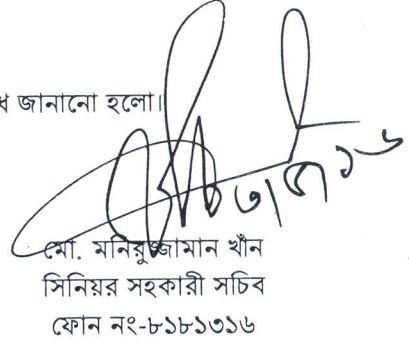 জানানো হলো।
মো. মনিরুজ্জামান খাঁন
সিনিয়র সহকারী সচিব
ফোন নং-৮১৮১৩১৬